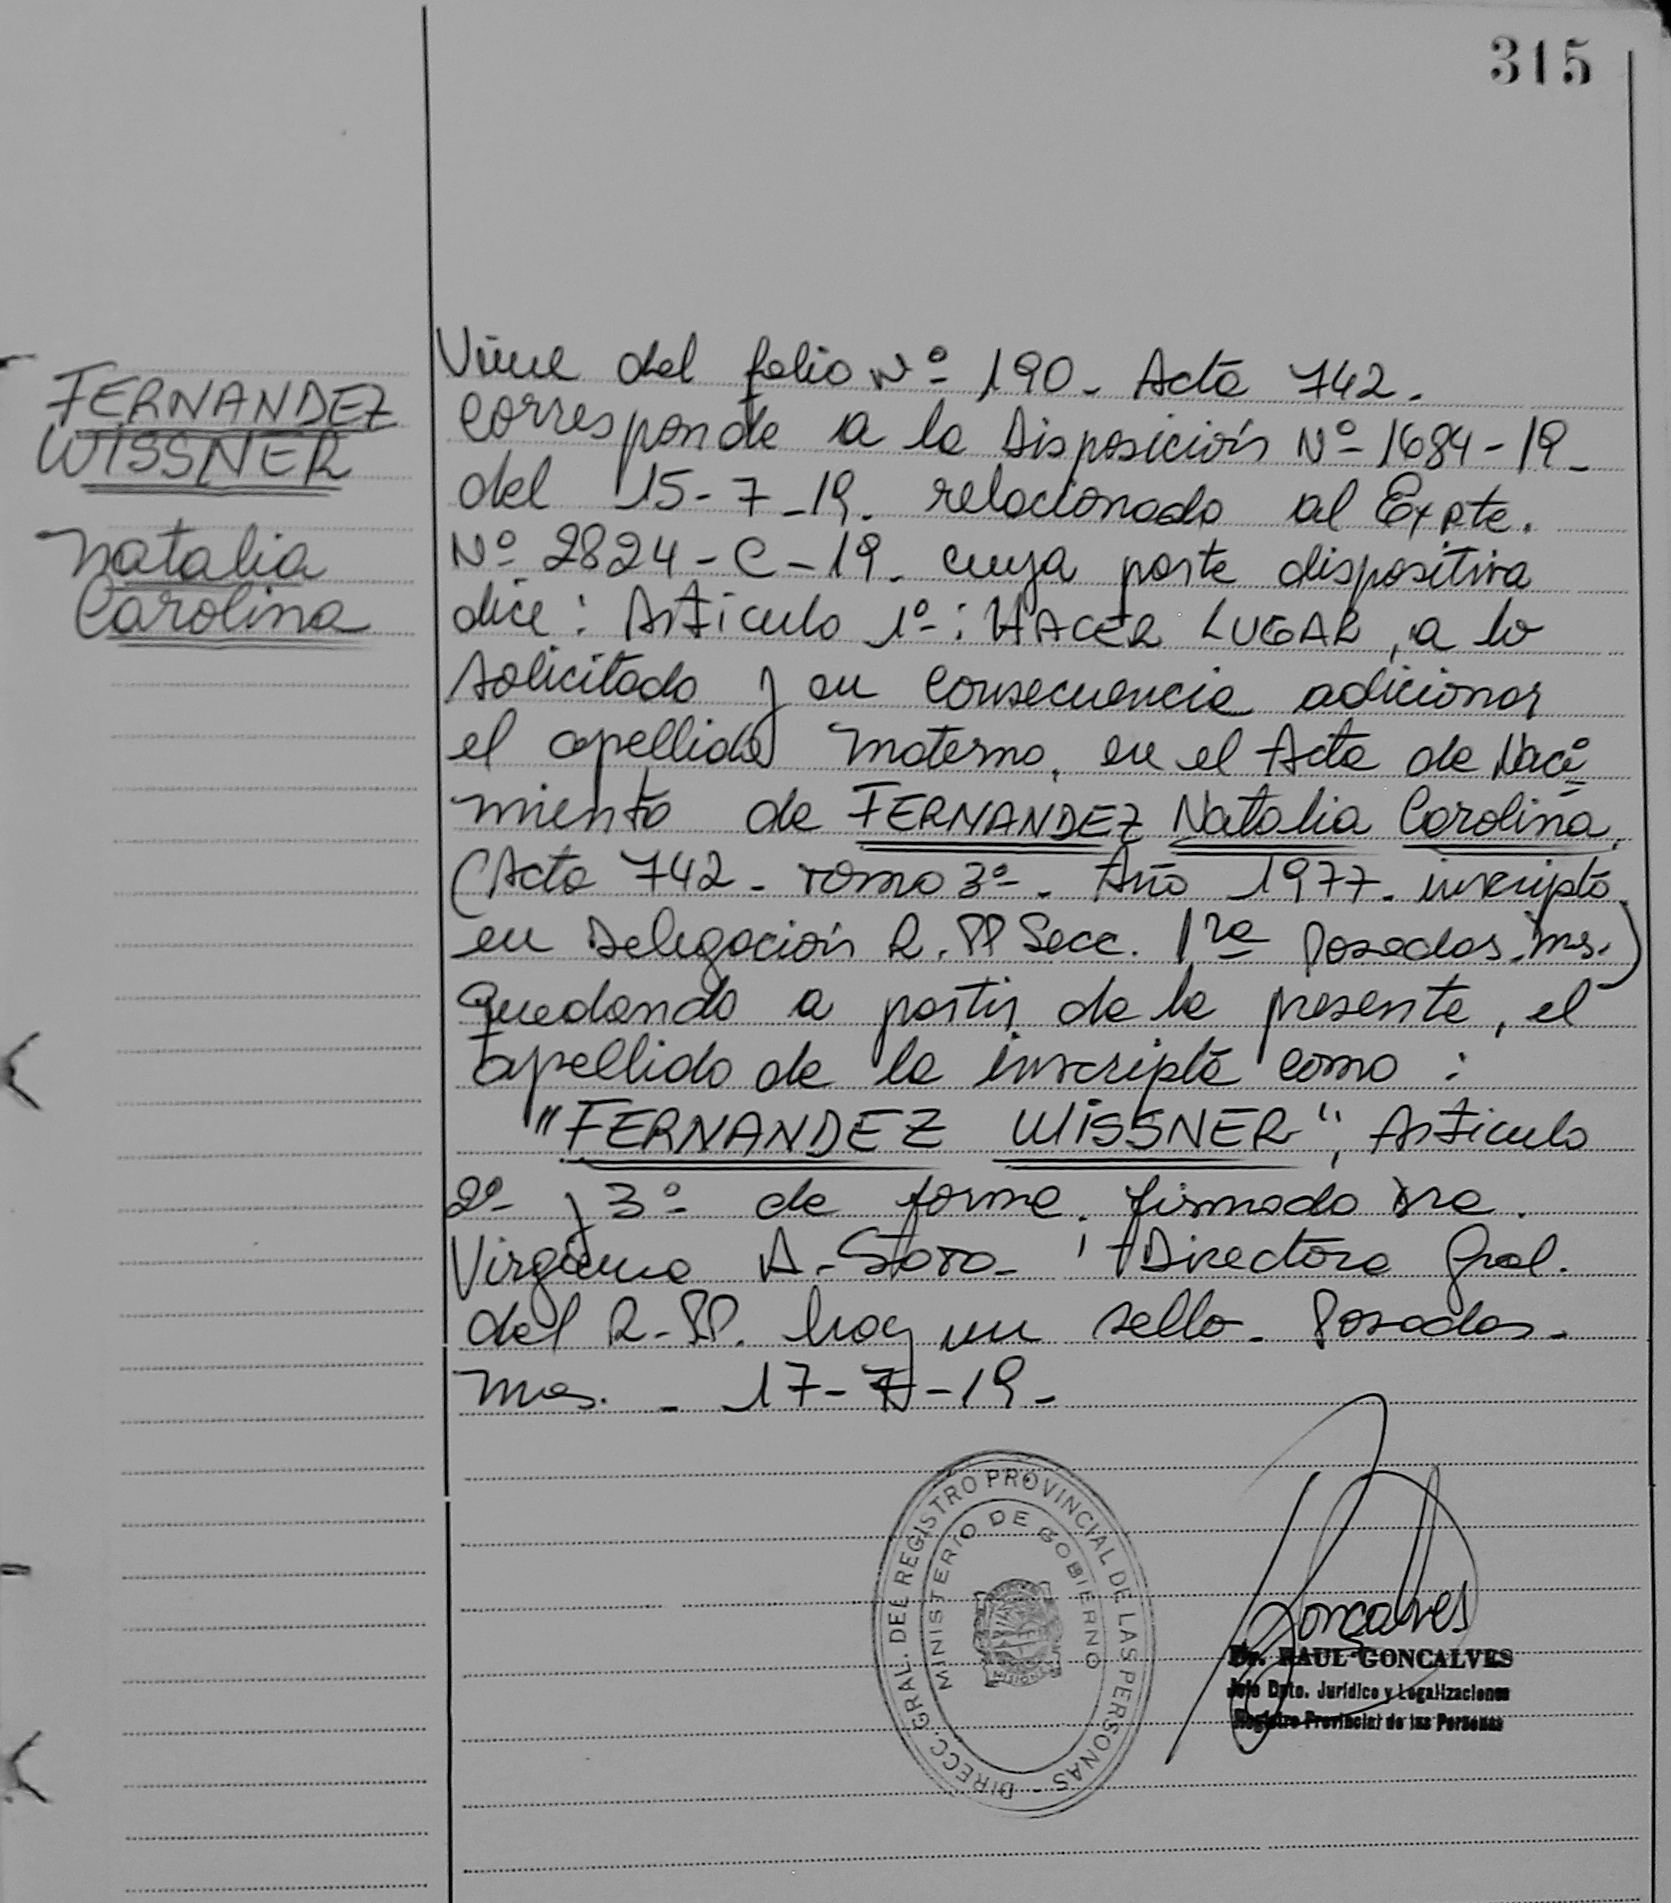 315
FERNANDEZ
WISSNER
Natalia
Carolina
Viene del folio Nº 190- Acta 742.
Corresponde a la Disposición Nº 1684-19-
del 15-7-19. relacionado al Expte.
Nº 2824-C-19. cuya parte dispositiva
dice: Artículo 1º: HACER LUGAR, a lo
solicitado y en consecuencia adicionar
el apellido materno, en el Acta de Naci
miento de FERNANDEZ Natalia Carolina.
(Acta 742- Tomo 3º-. Año 1977- inscripta
en Delegación R.PP Secc. 1ra Posadas. Ms.)
Quedando a partir de la presente, el
apellido de la inscripta como:
"FERNANDEZ WISSNER", Artículo
2º y 3º de forma. firmado Dra.
A- Directora Gral.
del R-PP. hay un sello- Posadas-
Mns. - 17-7-19-
DIRECC. GRAL. DEL REGISTRO PROVINCIAL DE LAS PERSONAS -
MINISTERIO DE GOBIERNO
MISIONES
Goncalves
Dr. RAUL GONCALVES
Jefe Dpto. Jurídico y Legalizaciones
Registro Provincial de las Personas